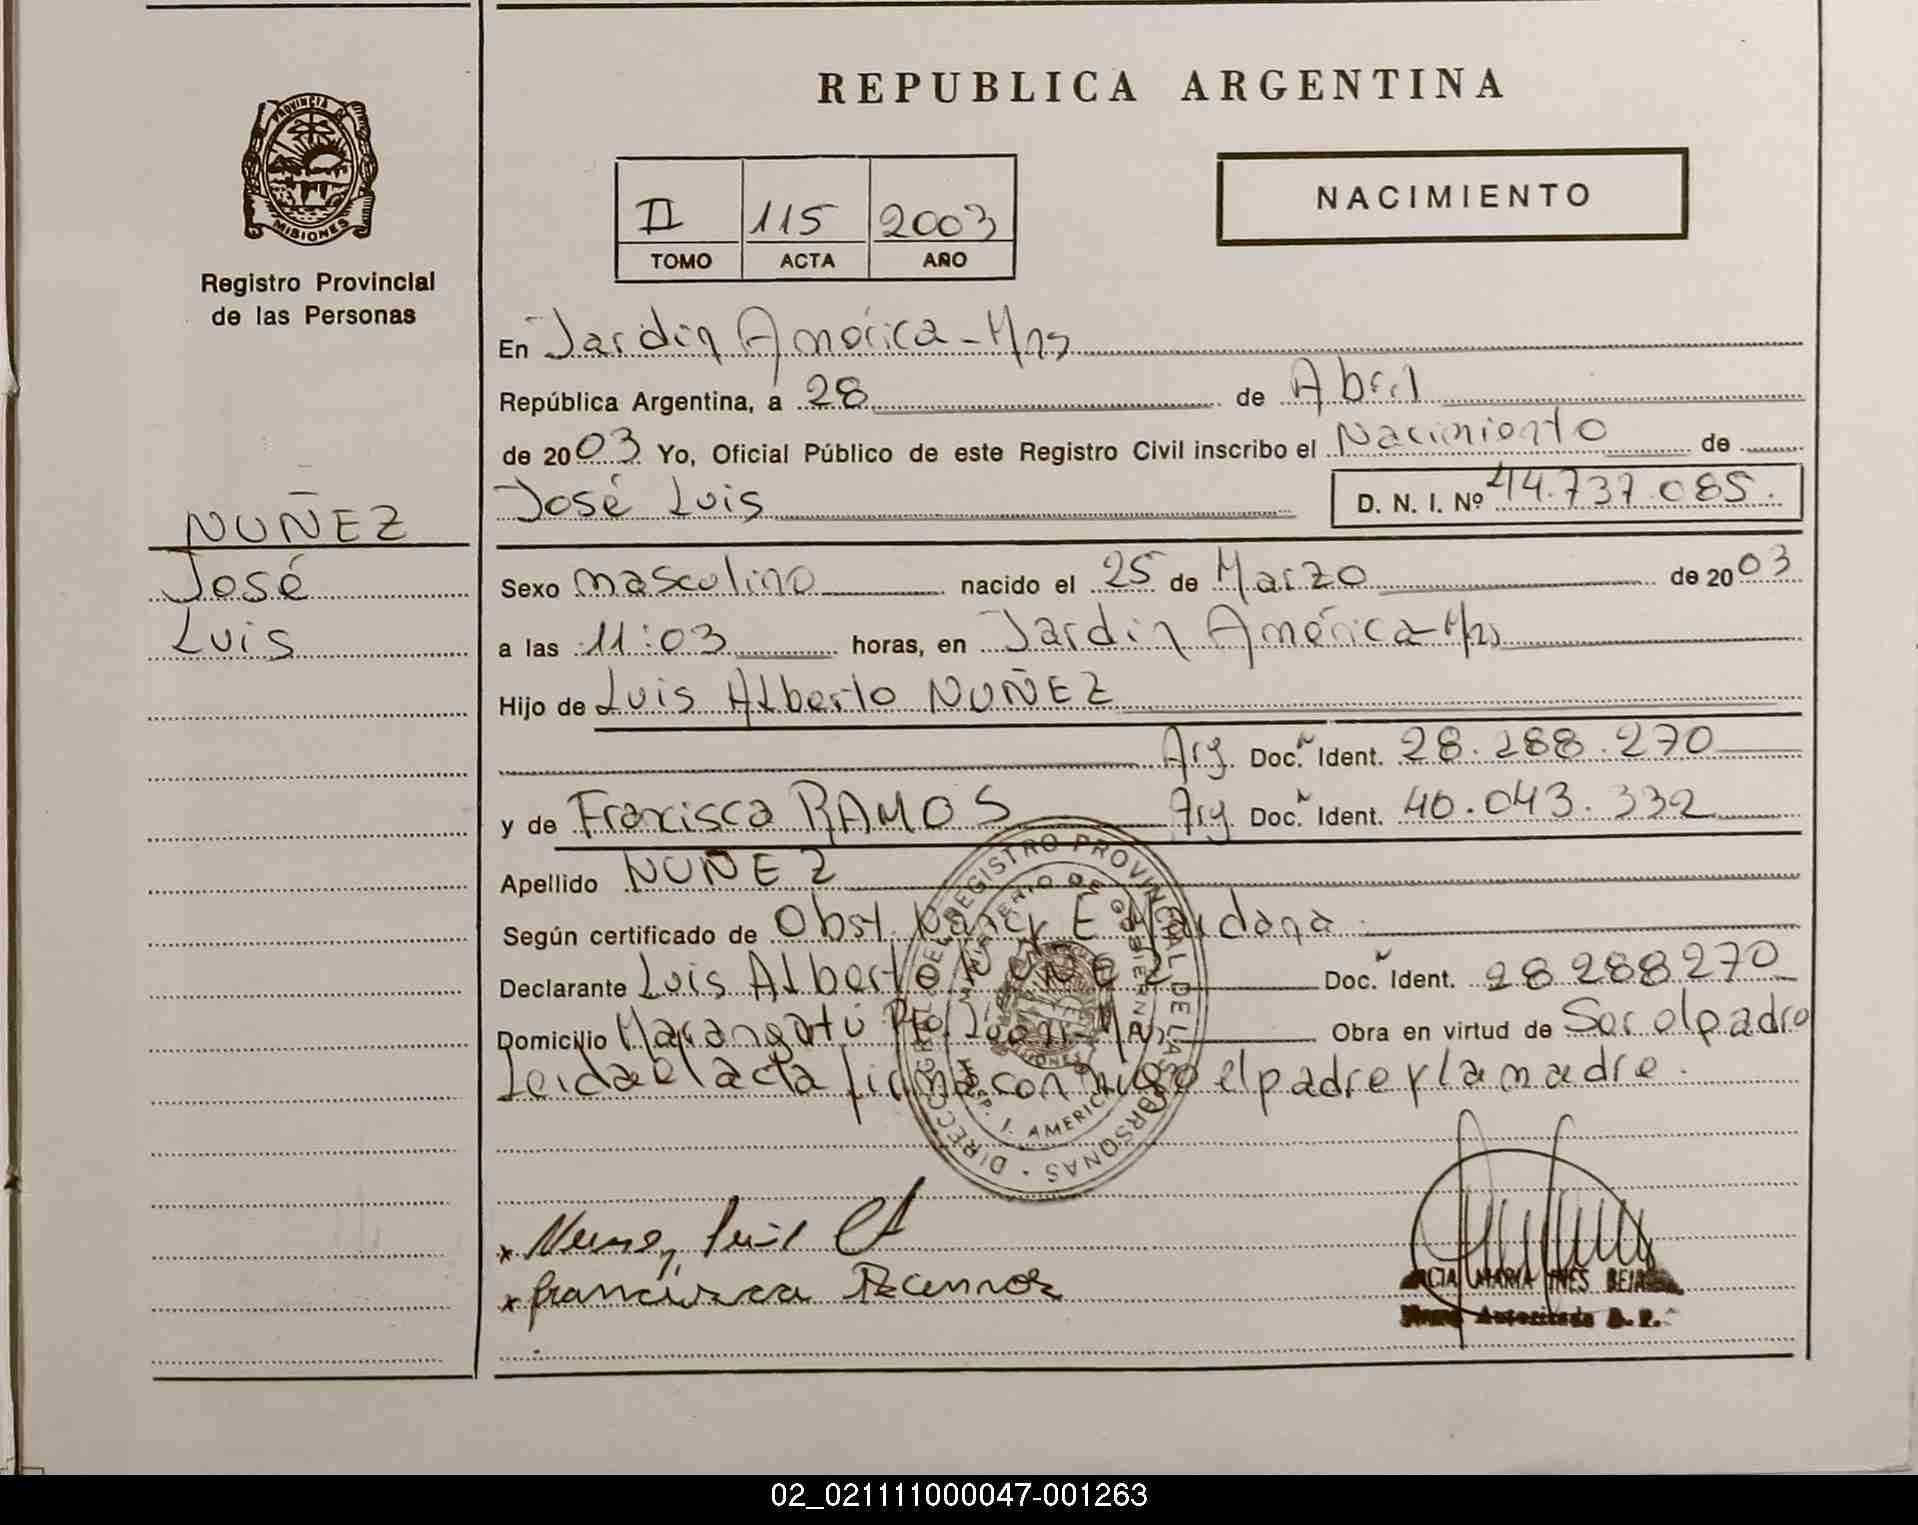 REPUBLICA ARGENTINA
PROVINCIA DE
MISIONES
Registro Provincial
de las Personas
NUÑEZ
José
Luis
II 115 2003
TOMO ACTA AÑO
NACIMIENTO
En Jardín América - Mns
República Argentina, a 28 de Abril
de 2003 Yo, Oficial Público de este Registro Civil inscribo el Nacimiento de
José Luis D. N. I. Nº 44.737.085.
Sexo masculino nacido el 25 de Marzo de 2003
a las 11:03 horas, en Jardín América - Mns
Hijo de Luis Alberto NUÑEZ
Arg. Doc. Ident. 28.288.270
y de Francisca RAMOS Arg. Doc. Ident. 40.043.332
Apellido NUÑEZ
Según certificado de Obst. Nancy E
Declarante Luis Alberto NUÑEZ Doc. Ident. 28288270
Domicilio Marangatú Pto. Mns Obra en virtud de Ser el padre
Leida el acta firma con migo el padre y la madre.
DIRECC. GRAL. DEL REGISTRO PROVINCIAL DE LAS PERSONAS
MINISTERIO DE GOBIERNO
J. AMERICA
x Nunez, Luis A
x francisca Ramos
MARIA INES
Firma Autorizada D. P.
02_021111000047-001263